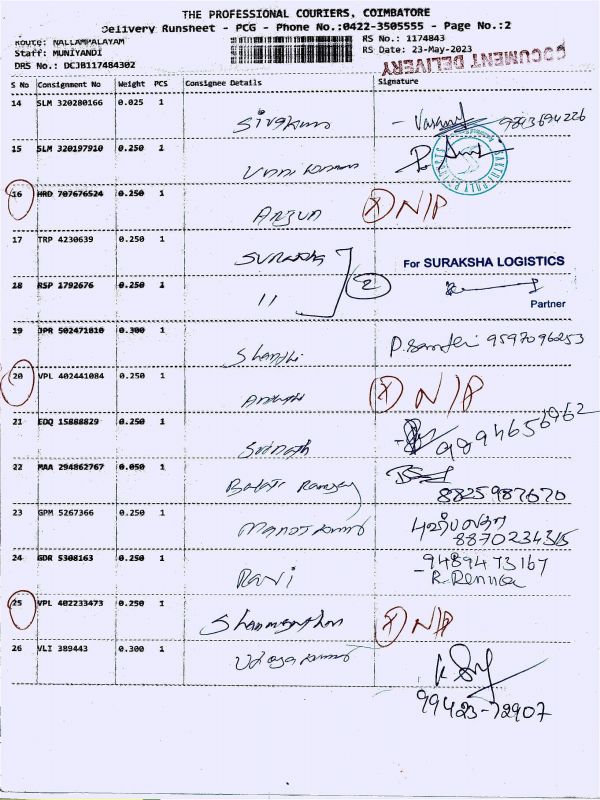 THE PROFESSIONAL COURIERS, COIMBATORE
Delivery Runsheet - PCG - Phone No.:0422-3505555 - Page No.:2
Route: NALLAMPALAYAM
RS No.: 1174843
Staff: MUNIYANDI
RS Date: 23-May-2023
DRS No.: DCJB117484302
DOCUMENT DELIVERY
S No Consignment No Weight PCS Consignee Details Signature
14 SLM 320280166 0.025 1
Sivakumar - 9843694226
15 SLM 320197910 0.250 1
16 HRD 707676524 0.250 1
Arjun (X) N/P
17 TRP 4230639 0.250 1
Suraksha
For SURAKSHA LOGISTICS
18 RSP 1792676 0.250 1
11 2
Partner
19 JPR 502471810 0.300 1
Shanthi P. 9597096253
20 VPL 402441084 0.250 1
(X) N/P
21 EDQ 15888829 0.250 1
9894656962
22 MAA 294862767 0.050 1
Balaji
8825987670
23 GPM 5267366 0.250 1
Manoj Kumar
8870234315
24 GDR 5308163 0.250 1
Rani - 9489473167
25 VPL 402233473 0.250 1
(X) N/P
26 VLI 389443 0.300 1
Udayakumar
99423-72907